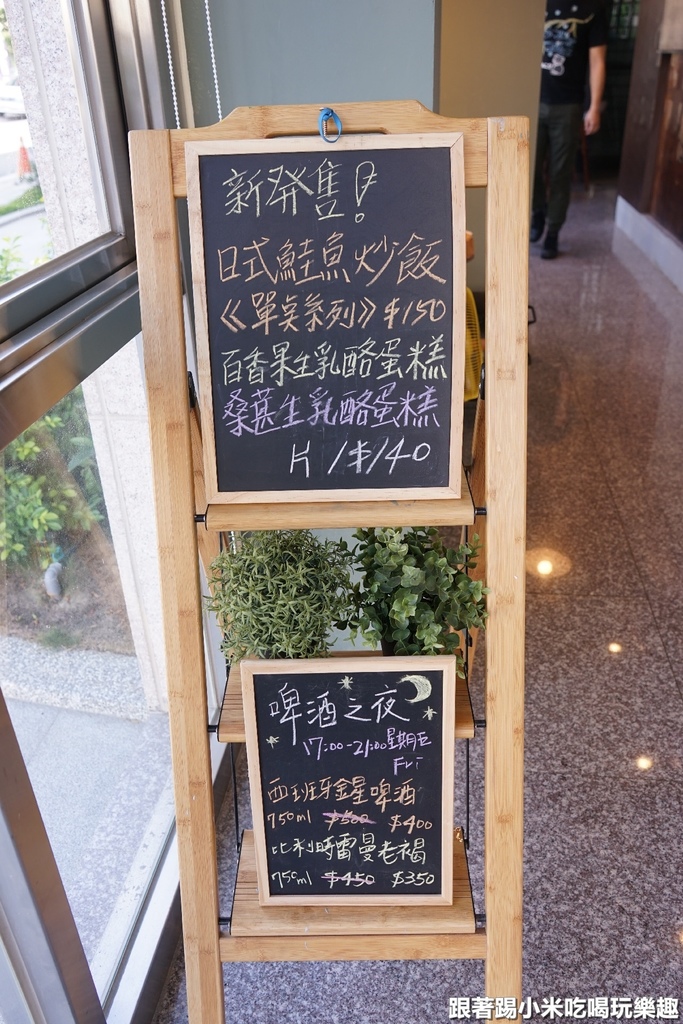 新発售!
日式鮭魚炒飯
《單點系列》$150
百香果生乳酪蛋糕
桑葚生乳酪蛋糕
片/$140
啤酒之夜
17:00-21:00星期五
Fri
西班牙金星啤酒
750ml $500 $400
比利時雷曼老褐
750ml $450 $350
跟著踢小米吃喝玩樂趣